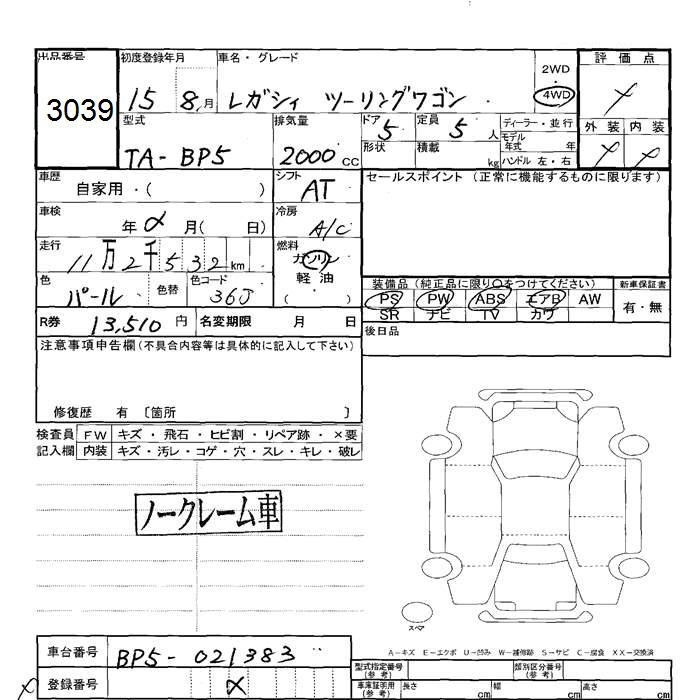 出品番号 初度登録年月 車名・グレード 2WD・ 評価点
3039 15 8月 レガシィ ツーリングワゴン 4WD
型式 排気量 ドア 定員 ディーラー・並行 外装 内装
TA-BP5 2000CC 5 5人 モデル年式 年
形状 積載 kg ハンドル 左・右
車歴 自家用・( ) シフト AT セールスポイント (正常に機能するものに限ります)
車検 年 月( 日) 冷房 A/C
走行 11万2千532km 燃料 ガソリン
色 パール 色替 色コード 36J 軽油 ( )
装備品 (純正品に限り○をつけてください) 新車保証書
PS PW ABS エアB AW 有・無
SR ナビ TV カワ
R券 13,510円 名変期限 月 日 後日品
注意事項申告欄(不具合内容等は具体的に記入して下さい)
修復歴 有 〔箇所 〕
検査員 FW キズ・飛石・ヒビ割・リペア跡・×要
記入欄 内装 キズ・汚レ・コゲ・穴・スレ・キレ・破レ
ノークレーム車
スペア
A-キズ E-エクボ U-凹み W-補修跡 S-サビ C-腐食 XX-交換済
車台番号 BP5-021383 型式指定番号(参考) 類別区分番号(参考)
登録番号 車庫証明用(参考) 長さ cm 幅 cm 高さ cm